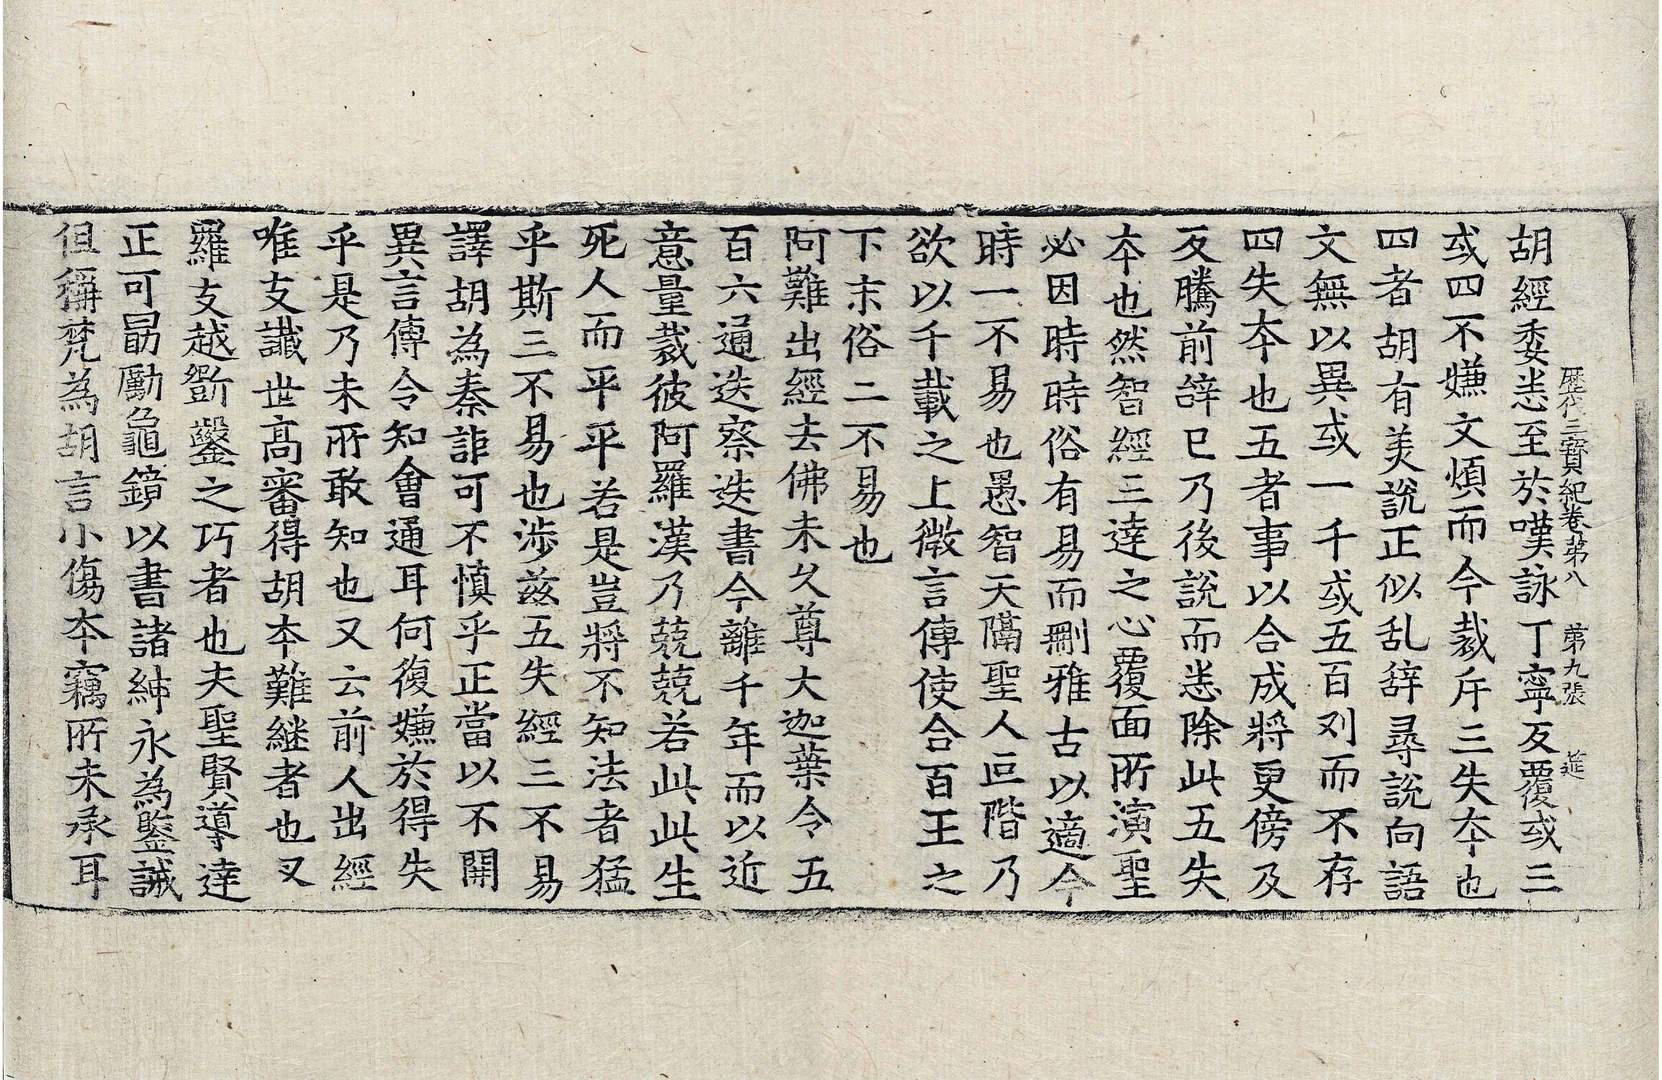 歷代三寶紀卷第八　第九張　莚
胡經委悉至於嘆詠丁寧反覆或三
或四不嫌文煩而今裁斥三失本也
四者胡有美說正似乱辞尋說向語
文無以異或一千或五百刈而不存
四失本也五者事以合成將更傍及
反騰前辞已乃後說而悉除此五失
本也然智經三達之心覆面所演聖
必因時時俗有易而刪雅古以適今
時一不易也愚智天隔聖人叵階乃
欲以千載之上微言傳使合百王之
下末俗二不易也
阿難出經去佛未久尊大迦葉令五
百六通迭察迭書今離千年而以近
意量裁彼阿羅漢乃兢兢若此此生
死人而平平若是豈將不知法者猛
乎斯三不易也涉兹五失經三不易
譯胡為秦詎可不慎乎正當以不開
異言傳令知會通耳何復嫌於得失
乎是乃未所敢知也又云前人出經
唯支讖世高審得胡本難継者也叉
羅支越斵鑿之巧者也夫聖賢導達
正可勗勵龜鏡以書諸紳永為鑒誡
但稱梵為胡言小傷本竊所未承耳